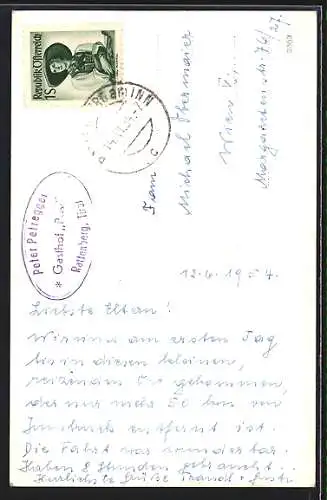 Republik Österreich
1S
RATTENBERG INN
c
Peter Petregger
* Gasthof „Post“
Rattenberg, Tirol
Fam.
Michael Obermaier
Wien V.,
Margareten Str. 76/27.
12.6.1954.
Liebste Eltern!
Wir sind am ersten Tag
bis in diesen kleinen,
reizenden Ort gekommen,
der nur mehr 50 km von
Innsbruck entfernt ist.
Die Fahrt war wunderbar.
Haben 8 Stunden gebraucht.
Herzlichste Grüße